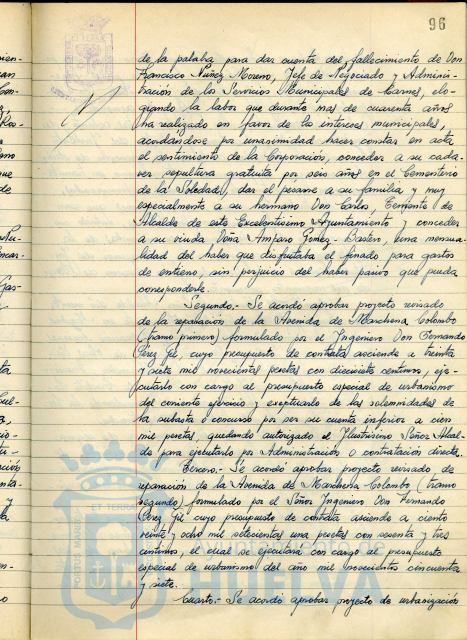 96
de la palaba para dar cuenta del fallecimiento de Don
Francisco Nuñez Moreno, Jefe de Negociado y Adminis-
tración de los Servicios Municipales de Carnes, elo-
giando la labor que durante mas de cuarenta años
ha realizado en favor de los intereses municipales,
acordandose por unanimidad hacer constar en acta
el sentimiento de la Corporación, conceder a su cada-
ver sepultura gratuita por seis años en el Cementerio
de la Soledad, dar el pesame a su familia y muy
especialmente a su hermano Don Carlos, Teniente de
Alcalde de este Excelentisimo Ayuntamiento y conceder
a su viuda Doña Amparo Gomez-Bastero, una mensua-
lidad del haber que disfrutaba el finado para gastos
de entierro, sin perjuicio del haber pasivo que pueda
corresponderle.
Segundo.- Se acordó aprobar proyecto revisado
de la reparación de la Avenida de Marchena Colombo
(tramo primero) formulado por el Ingeniero Don Fernando
Pérez Gil, cuyo presupuesto de contrata asciende a treinta
y siete mil novecientas pesetas con diecisiete centimos, eje-
cutarlo con cargo al presupuesto especial de urbanismo
del corriente ejercicio y exeptuarlo de las solemnidades de
la subasta o concurso por ser su cuenta inferior a cien
mil pesetas, quedando autorizado el Ilustrisimo Señor Alcal-
de para ejecutarlo por Administración o contratación directa.
Tercero.- Se acordó aprobar proyecto revisado de
reparación de la Avenida de Marchena Colombo (tramo
segundo) formulado por el Señor Ingeniero Don Fernando
Pérez Gil cuyo presupuesto de contrata asciende a ciento
veinte y ocho mil setecientas una pesetas con sesenta y tres
centimos, el cual se ejecutará con cargo al presupuesto
especial de urbanismo del año mil novecientos cincuenta
y siete.
Cuarto.- Se acordó aprobar proyecto de urbanización
HUELVA